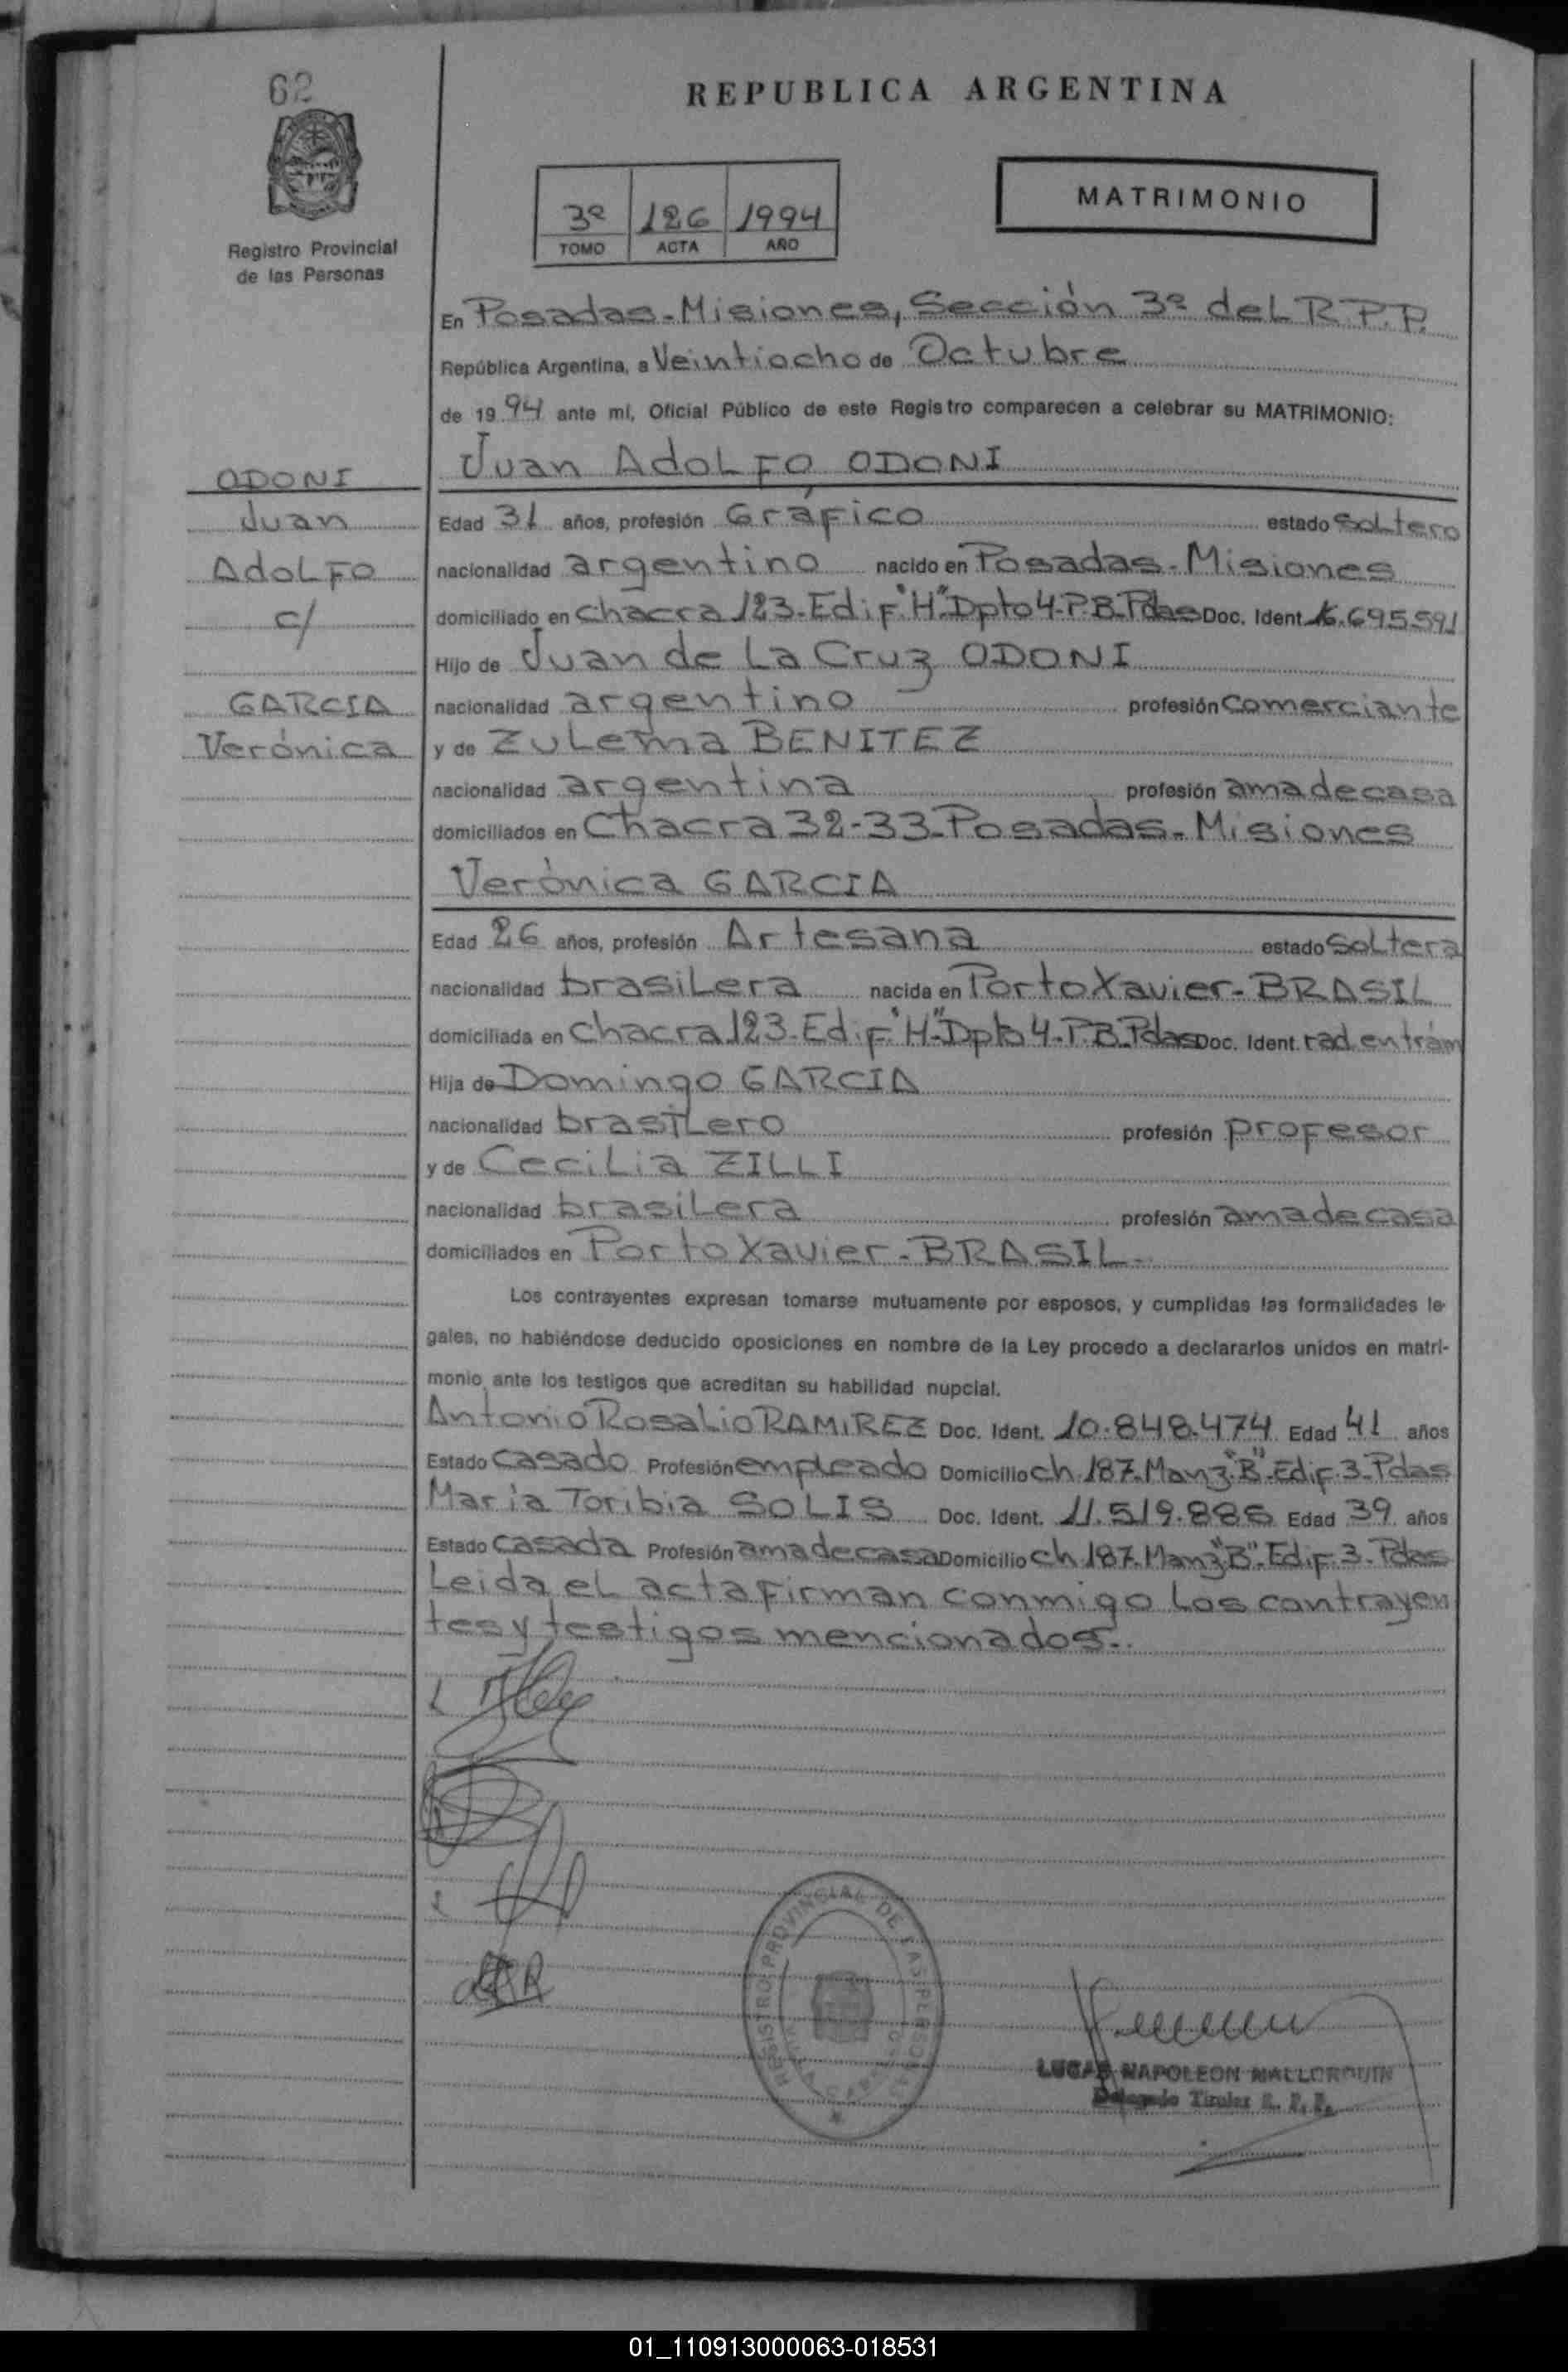 62
REPUBLICA ARGENTINA
Registro Provincial
de las Personas
3º 126 1994
TOMO ACTA AÑO
MATRIMONIO
En Posadas-Misiones, Sección 3º del R.P.P.
República Argentina, a Veintiocho de Octubre
de 1994 ante mí, Oficial Público de este Registro comparecen a celebrar su MATRIMONIO:
Juan Adolfo ODONI
ODONI
Juan
Adolfo
c/
GARCIA
Verónica
Edad 31 años, profesión Gráfico estado Soltero
nacionalidad argentino nacido en Posadas-Misiones
domiciliado en Chacra 123-Edif"H"Dpto 4-P.B-Pdas Doc. Ident. 16.695.591
Hijo de Juan de La Cruz ODONI
nacionalidad argentino profesión comerciante
y de Zulema BENITEZ
nacionalidad argentina profesión ama de casa
domiciliados en Chacra 32-33-Posadas-Misiones
Verónica GARCIA
Edad 26 años, profesión Artesana estado Soltera
nacionalidad brasilera nacida en Porto Xavier-BRASIL
domiciliada en Chacra 123-Edif"H"Dpto 4-P.B-Pdas Doc. Ident. rad en trám
Hija de Domingo GARCIA
nacionalidad brasilero profesión profesor
y de Cecilia ZILLI
nacionalidad brasilera profesión ama de casa
domiciliados en Porto Xavier-BRASIL-
Los contrayentes expresan tomarse mutuamente por esposos, y cumplidas las formalidades le-
gales, no habiéndose deducido oposiciones en nombre de la Ley procedo a declararlos unidos en matri-
monio ante los testigos que acreditan su habilidad nupcial.
Antonio Rosalio RAMIREZ Doc. Ident. 10.848.474 Edad 41 años
Estado Casado Profesión empleado Domicilio ch 187-Manz"B"-Edif.3-Pdas
María Toribia SOLIS Doc. Ident. 11.519.886 Edad 39 años
Estado Casada Profesión ama de casa Domicilio ch 187-Manz"B"-Edif.3-Pdas
Leida el acta firman conmigo los contrayen
tes y testigos mencionados.
REGISTRO PROVINCIAL DE LAS PERSONAS
LUCAS NAPOLEON MALLORQUIN
Delegado Titular R. P. P.
01_110913000063-018531